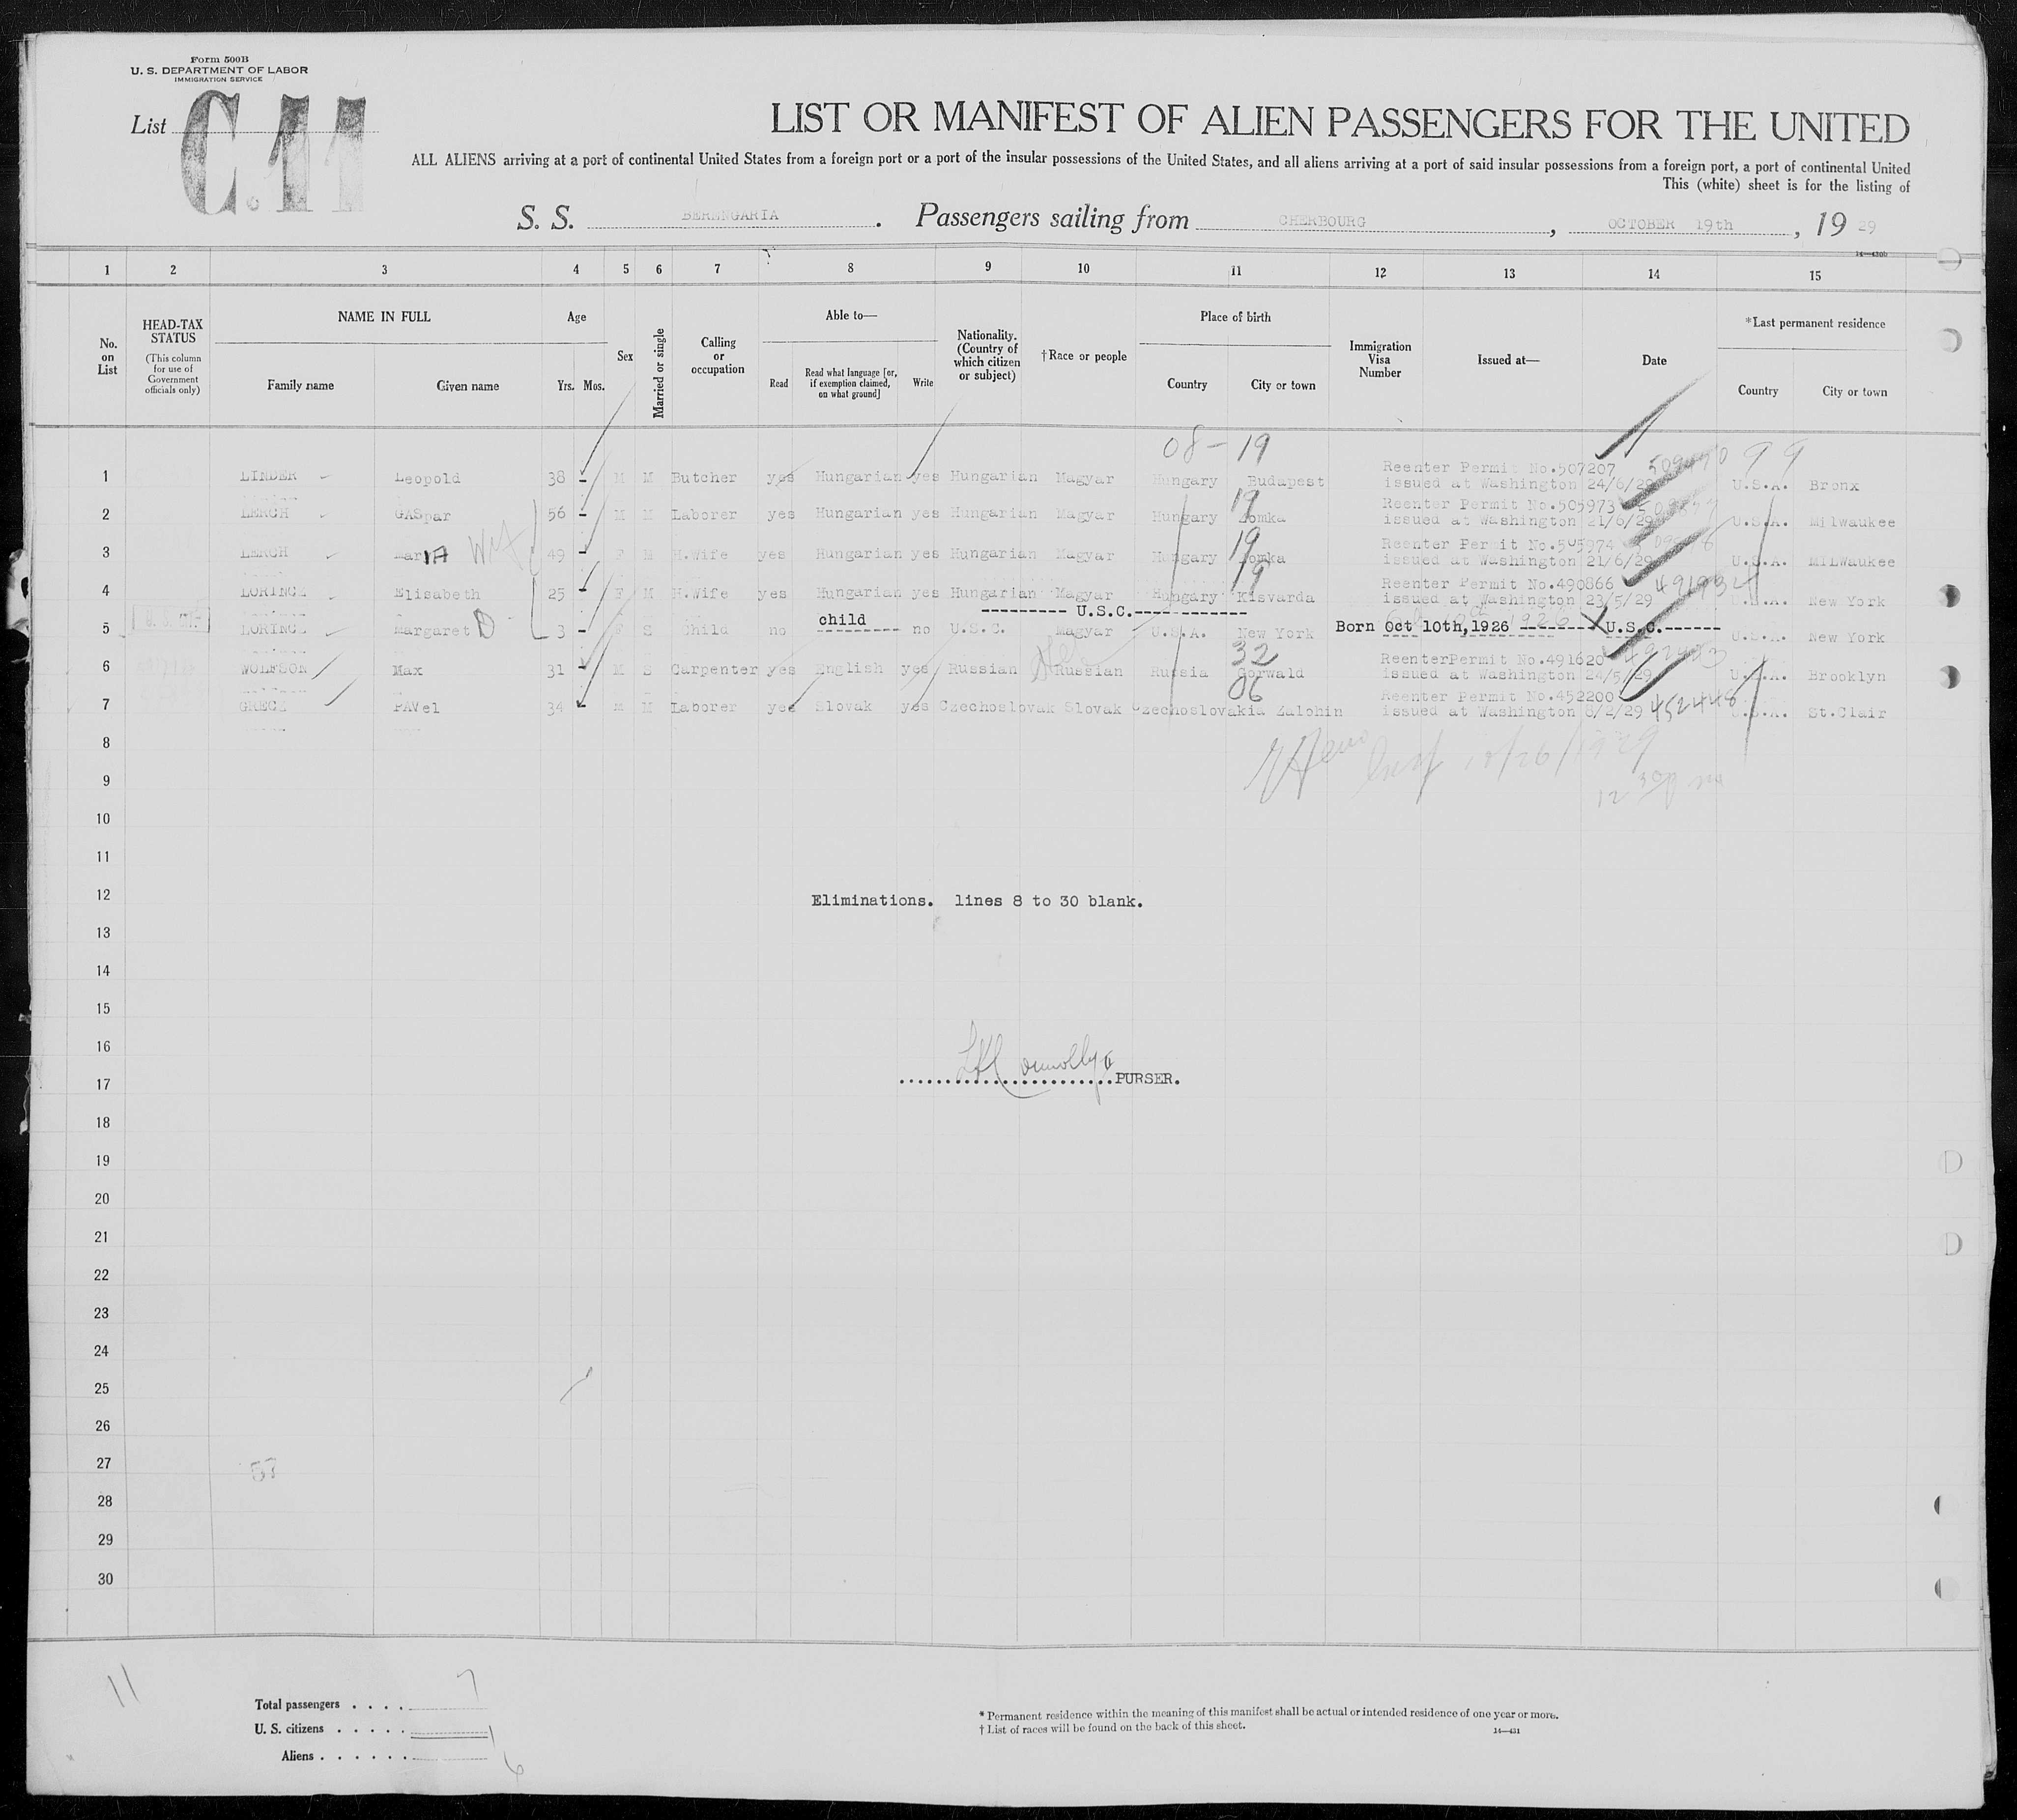 Form 500B
U. S. DEPARTMENT OF LABOR
IMMIGRATION SERVICE
List C.11
LIST OR MANIFEST OF ALIEN PASSENGERS FOR THE UNITED
ALL ALIENS arriving at a port of continental United States from a foreign port or a port of the insular possessions of the United States, and all aliens arriving at a port of said insular possessions from a foreign port, a port of continental United
This (white) sheet is for the listing of
S. S. BERENGARIA. Passengers sailing from CHERBOURG, OCTOBER 19th, 19 29
14—430b
1 2 3 4 5 6 7 8 9 10 11 12 13 14 15
No. on List
HEAD-TAX STATUS
(This column for use of Government officials only)
NAME IN FULL
Family name Given name
Age
Yrs. Mos.
Sex
Married or single
Calling or occupation
Able to—
Read
Read what language [or, if exemption claimed, on what ground]
Write
Nationality. (Country of which citizen or subject)
†Race or people
Place of birth
Country City or town
Immigration Visa Number
Issued at—
Date
*Last permanent residence
Country City or town
08-19
99
1 LINDER Leopold 38 - M M Butcher yes Hungarian yes Hungarian Magyar Hungary Budapest Reenter Permit No.507207 issued at Washington 24/6/29 U.S.A. Bronx
2 LERCH GASpar 56 - M M Laborer yes Hungarian yes Hungarian Magyar Hungary 19 Tomka Reenter Permit No.505973 issued at Washington 21/6/29 U.S.A. Milwaukee
3 LERCH MarIA Wife 49 - F M H.Wife yes Hungarian yes Hungarian Magyar Hungary 19 Tomka Reenter Permit No.505974 issued at Washington 21/6/29 U.S.A. MILWaukee
4 LORINCZ Elisabeth 25 - F M H.Wife yes Hungarian yes Hungarian Magyar Hungary 19 Kisvarda Reenter Permit No.490866 issued at Washington 23/5/29 U.S.A. New York
--------- U.S.C.------------
5 LORINCZ Margaret D 3 - F S Child no child no U.S.C. Magyar U.S.A. New York Born Oct 10th, 1926 --------- U.S.C.------ U.S.A. New York
6 WOLFSON Max 31 - M S Carpenter yes English yes Russian Russian Russia 32 Gorwald ReenterPermit No.491620 issued at Washington 24/5/29 U.S.A. Brooklyn
7 GRECZ PAVel 34 - M M Laborer yes Slovak yes Czechoslovak Slovak Czechoslovakia 06 Zalohin Reenter Permit No.452200 issued at Washington 8/2/29 452448 U.S.A. St.Clair
8
10/26/1929
9
10
11
12 Eliminations. lines 8 to 30 blank.
13
14
15
16
17 PURSER.
18
19
20
21
22
23
24
25
26
27 57
28
29
30
11
Total passengers . . . . 7
U. S. citizens . . . . . 1
Aliens . . . . . . 6
* Permanent residence within the meaning of this manifest shall be actual or intended residence of one year or more.
† List of races will be found on the back of this sheet.
14—431